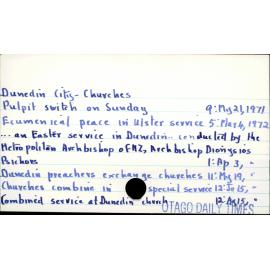 Dunedin City - Churches
Pulpit switch on Sunday 9: My 21, 1971
Ecumenical peace in Ulster service 5: Mar 4, 1972
... an Easter service in Dunedin.. conducted by the
Metropolitan Archbishop of NZ, Archbishop Dionysios
1: Ap 3, "
Dunedin preachers exchange churches 11: My 19, "
Churches combine in special service 12: Je 15, "
Combined service at Dunedin church 12: Ag 15, "
OTAGO DAILY TIMES